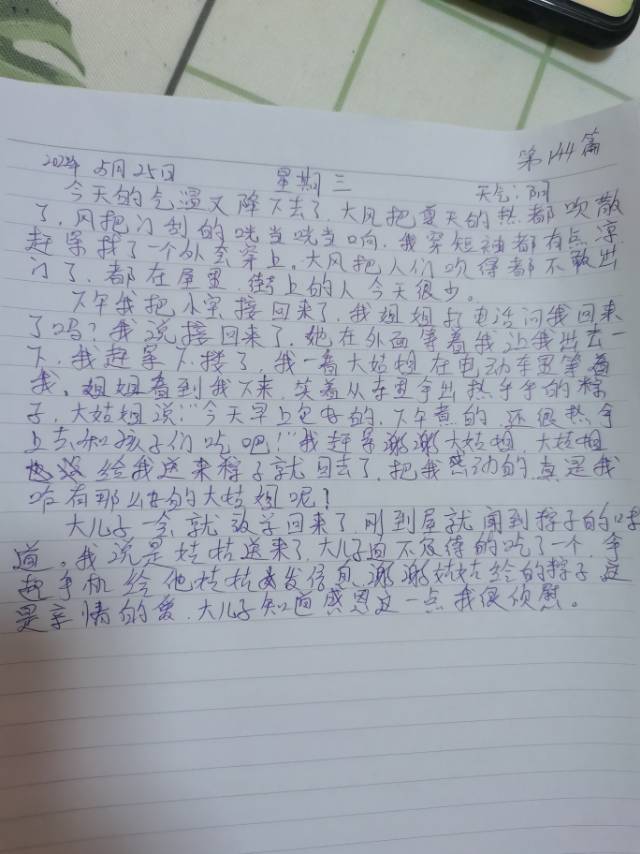 第144篇
2022年5月25日 星期三 天气:阴
今天的气温又降下去了,大风把夏天的热都吹散
了,风把门刮的咣当咣当响,我穿短袖都有点凉
赶紧找了一个外套穿上。大风把人们吹得都不敢出
门了,都在屋里,街上的人今天很少。
下午我把小宝接回来了,我姐姐打电话问我回来
了吗?我说接回来了,她在外面等着我让我出去一
下,我赶紧下楼了,我一看大姑姐在电动车里等着
我,姐姐看到我下来,笑着从车里拿出热乎乎的粽
子,大姑姐说:"今天早上包好的,下午煮的,还很热拿
上去和孩子们吃吧!"我赶紧谢谢大姑姐,大姑姐
给我送来粽子就回去了,把我感动的真是我
咋有那么好的大姑姐呢?
大儿子一会就放学回来了,刚到屋就闻到粽子的味
道,我说是姑姑送来了,大儿子迫不及待的吃了一个,拿
起手机给他姑姑发信息,谢谢姑姑给的粽子,这
是亲情的爱,大儿子知道感恩这一点我很欣慰。